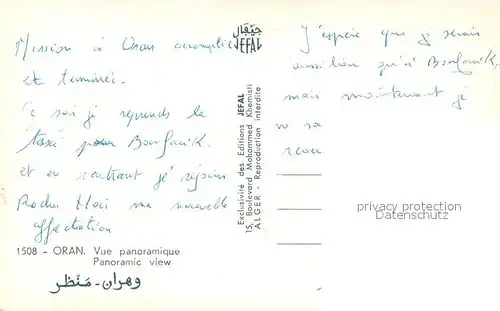 Mission à Oran accomplie
et terminée.
Ce soir je reprends le
taxi pour Bousfer
et en rentrant je rejoins
ma nouvelle
affectation
1508 - ORAN. Vue panoramique
Panoramic view
وهران - منظر
جيفال
JEFAL
Exclusivité des Editions JEFAL
15, Boulevard Mohammed Khemisti
ALGER - Reproduction interdite
J'espère que je serais
aussi bien qu'à
mais maintenant je
privacy protection
Datenschutz